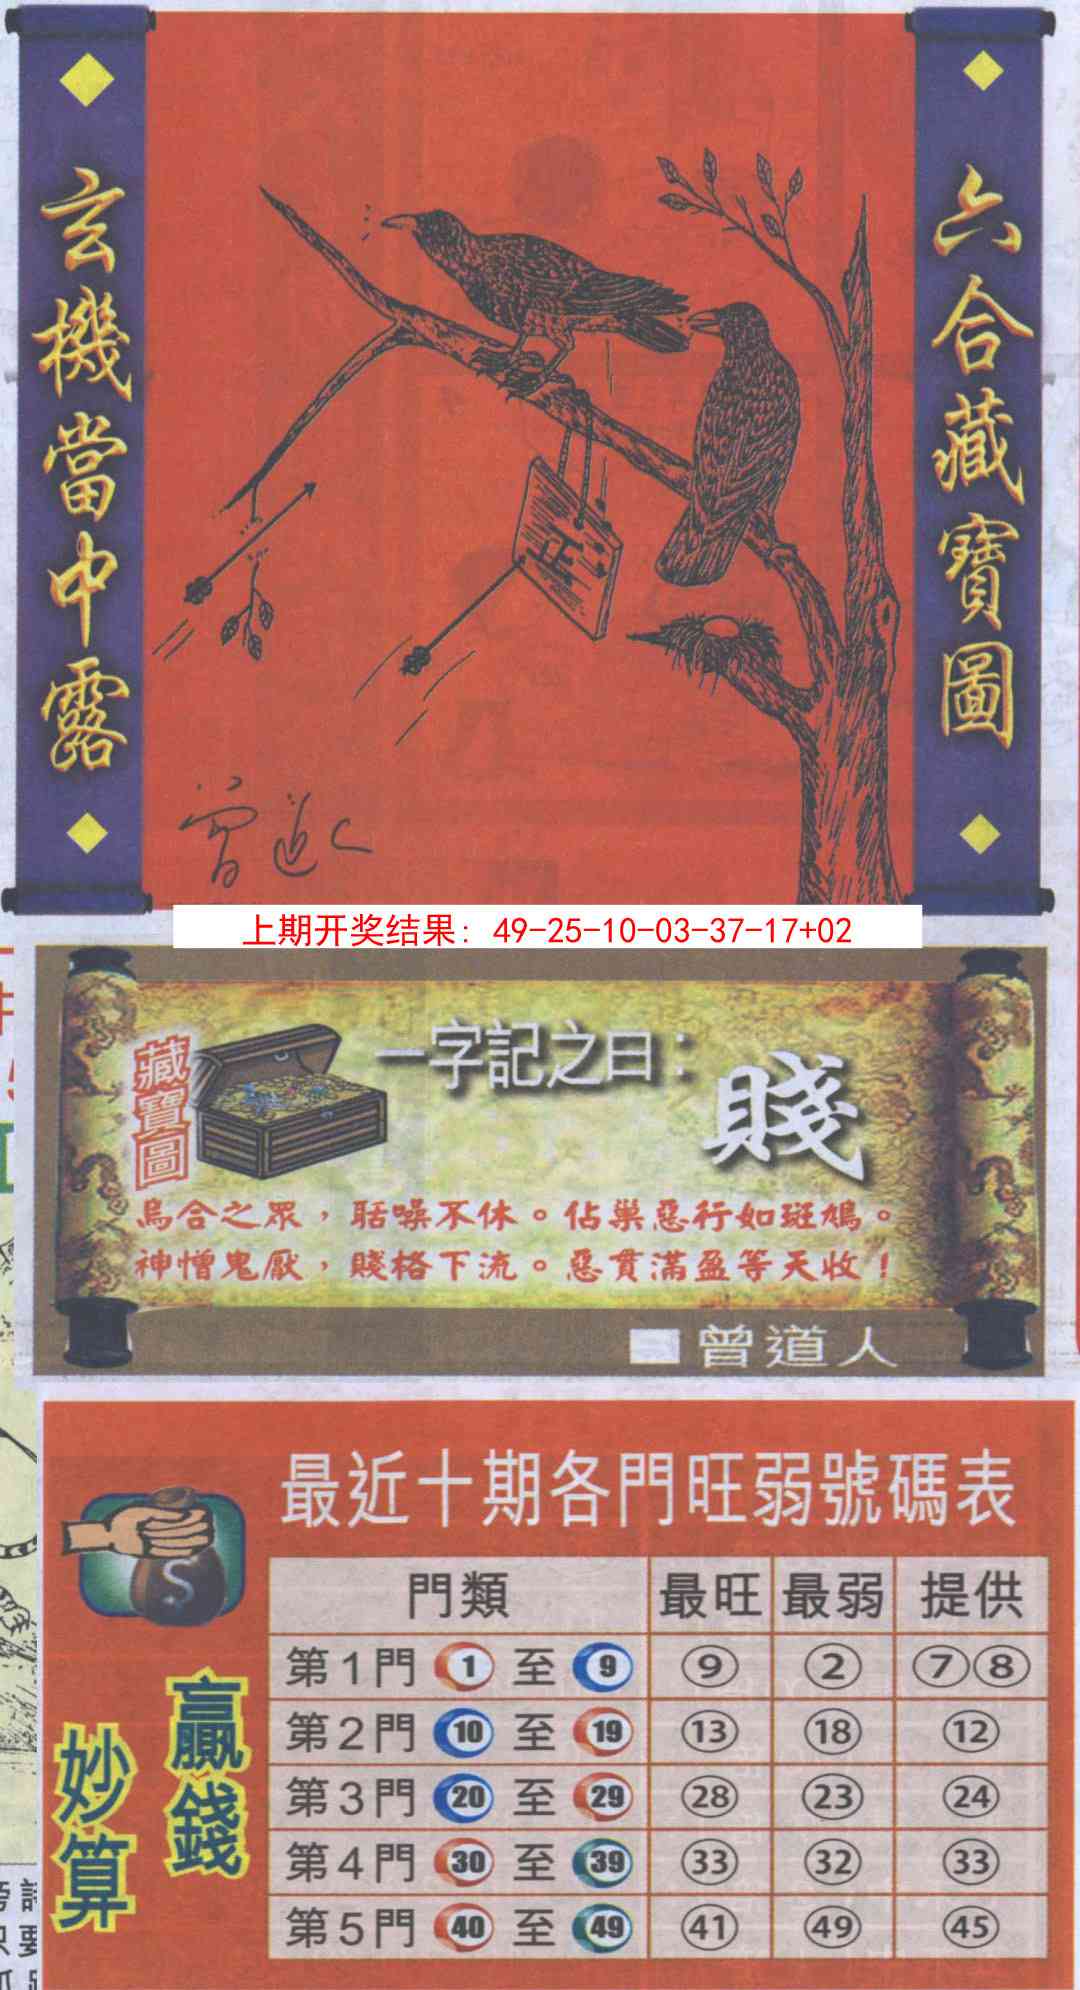 六合藏寶圖
玄機當中露
正
曾道人
上期开奖结果：49-25-10-03-37-17+02
藏寶圖
一字記之曰：
賤
烏合之眾，聒噪不休。佔巢惡行如斑鳩。
神憎鬼厭，賤格下流。惡貫滿盈等天收！
曾道人
最近十期各門旺弱號碼表
贏錢
妙算
門類 最旺 最弱 提供
第1門 1 至 9 9 2 7 8
第2門 10 至 19 13 18 12
第3門 20 至 29 28 23 24
第4門 30 至 39 33 32 33
第5門 40 至 49 41 49 45